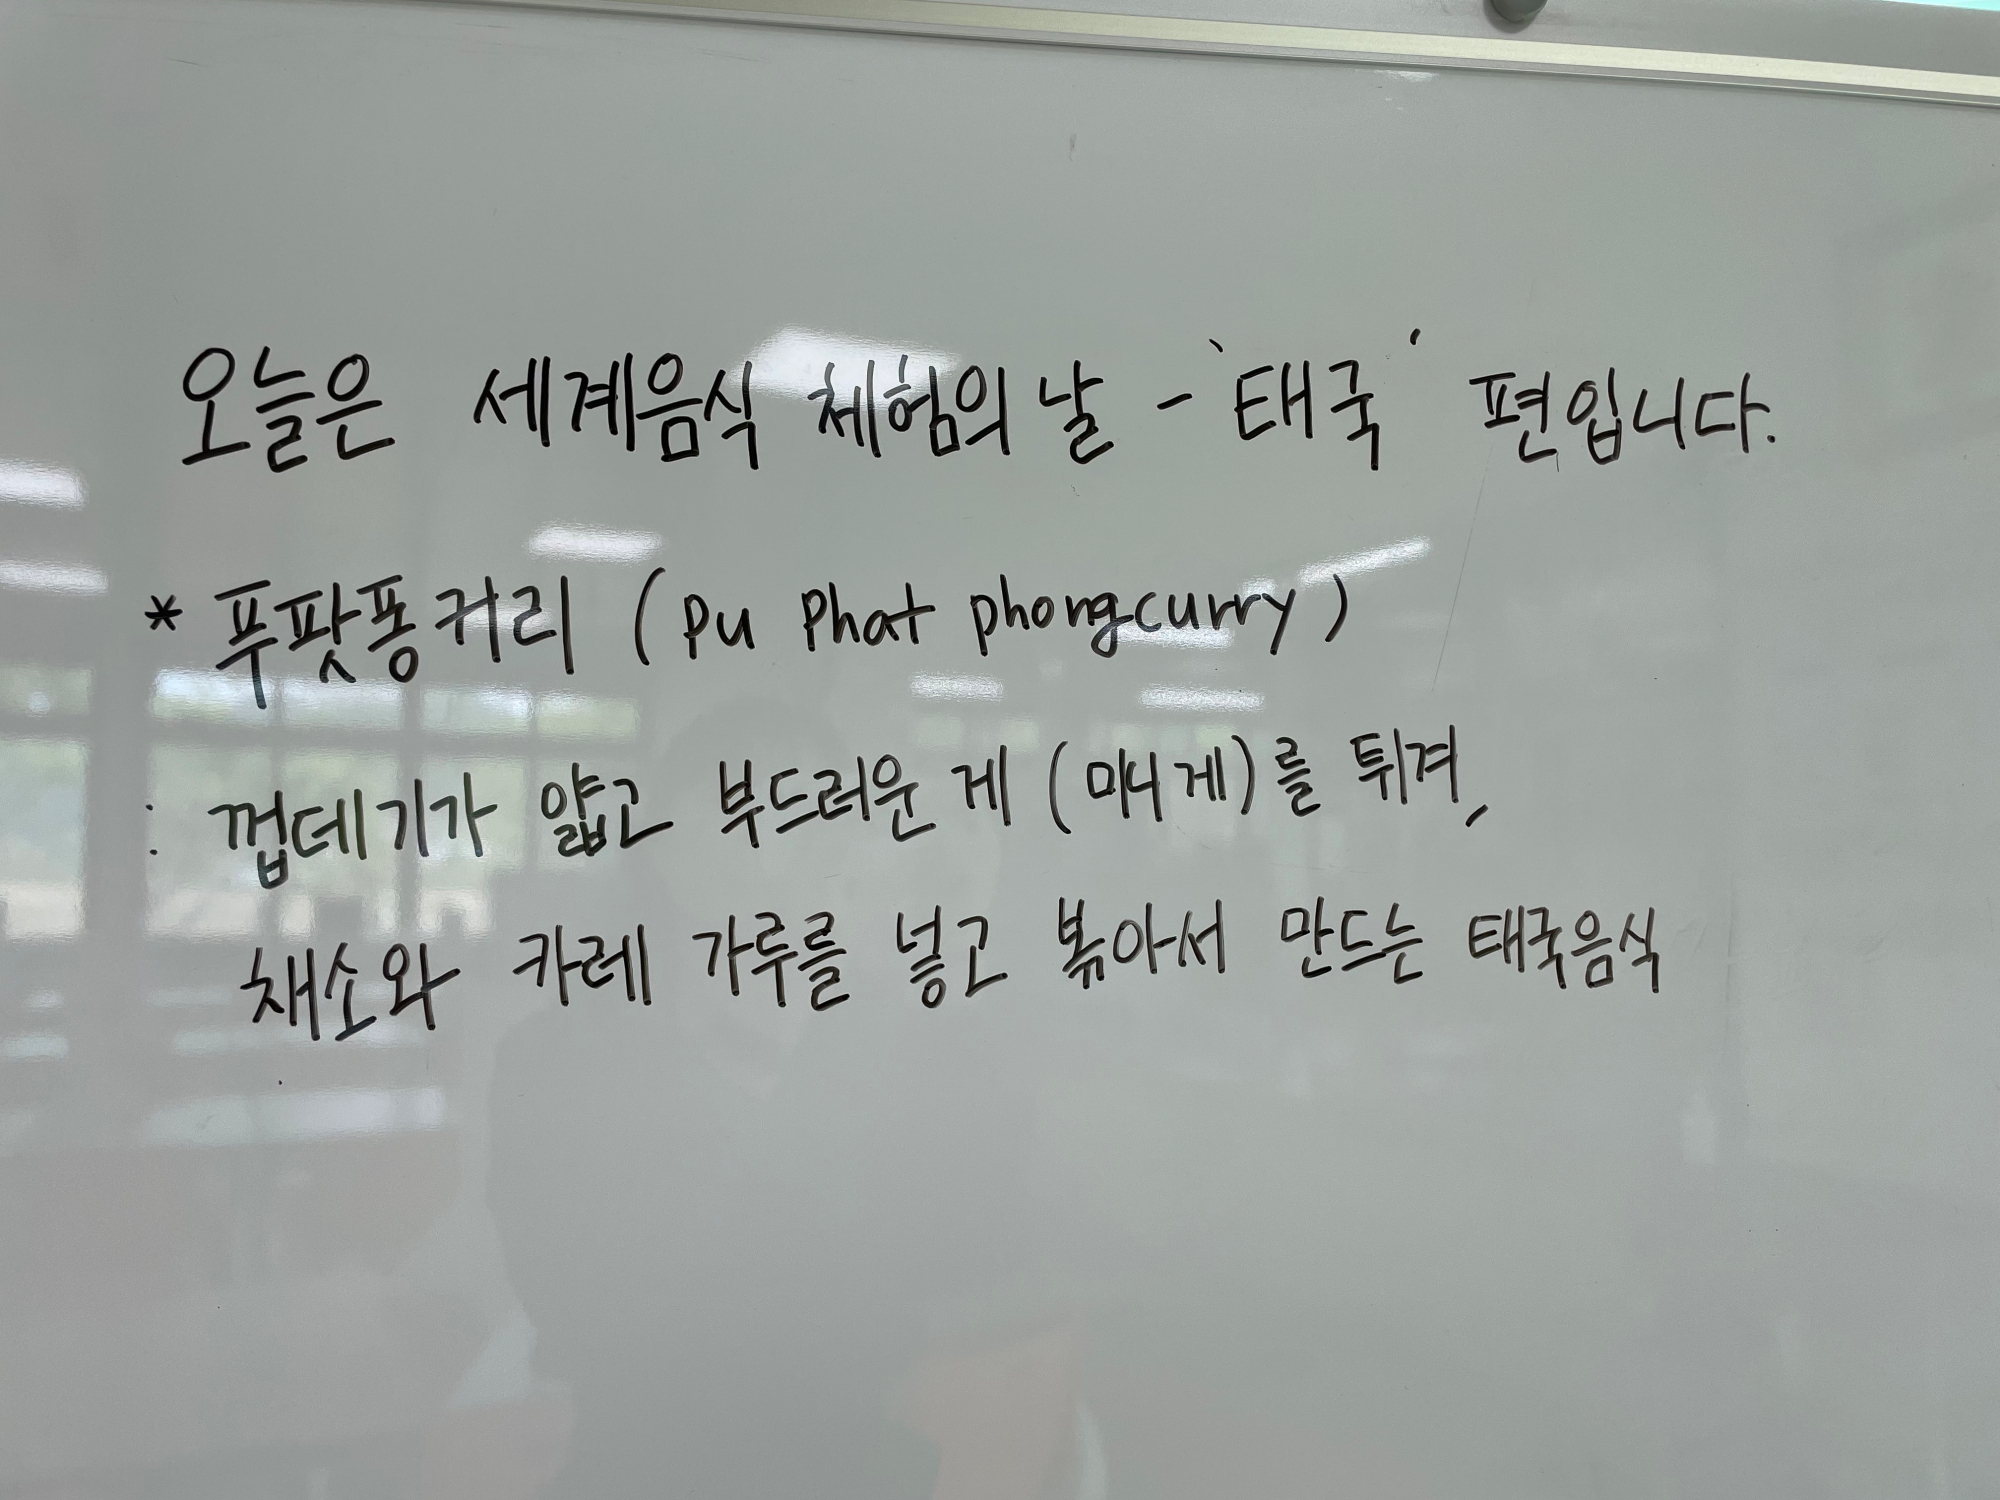 오늘은 세계음식 체험의 날 - '태국' 편입니다.
* 푸팟퐁커리 (pu phat phongcurry)
: 껍데기가 얇고 부드러운 게 (미니 게)를 튀겨,
채소와 카레 가루를 넣고 볶아서 만드는 태국음식